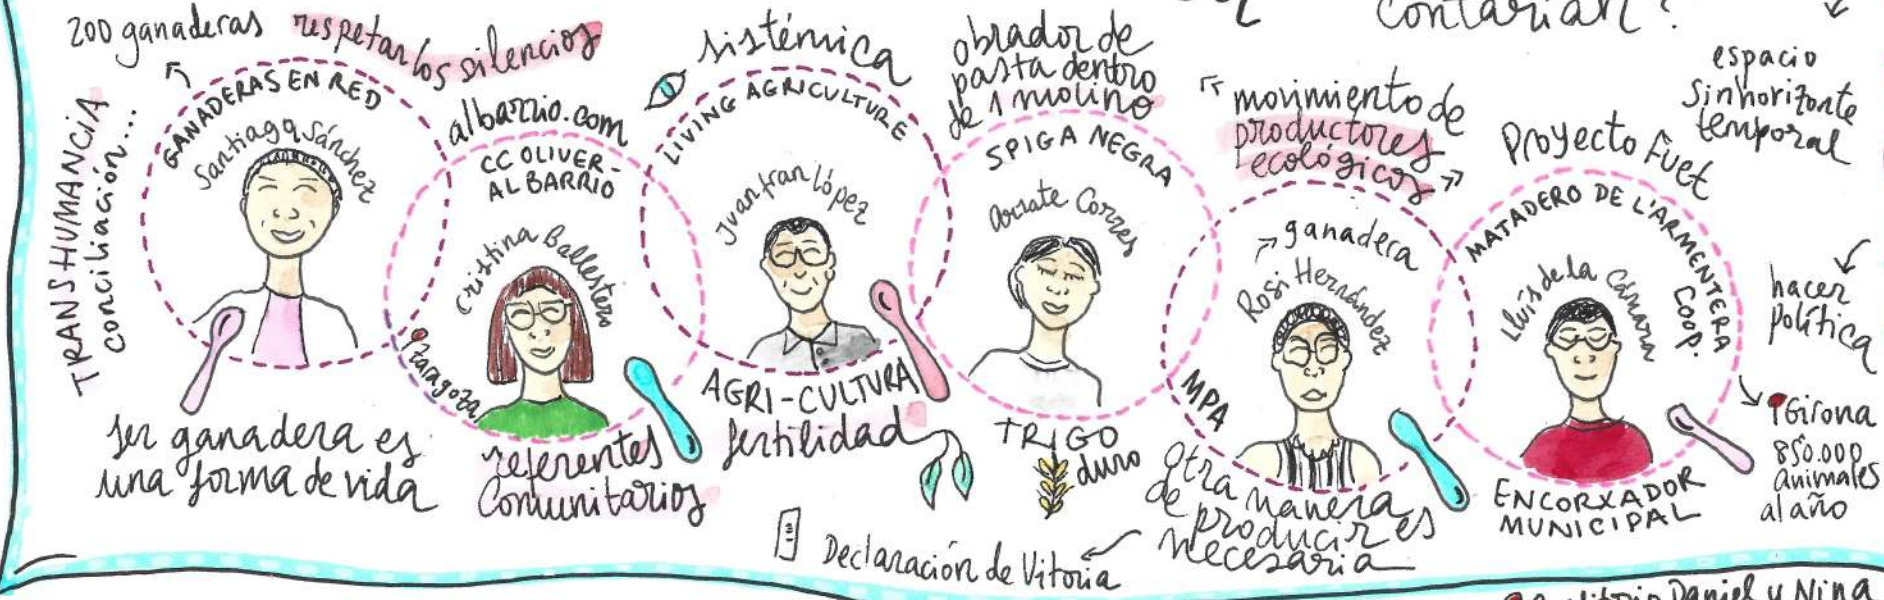 contarían?
200 ganaderas
respetar los silencios
TRANSHUMANCIA
conciliación...
GANADERAS EN RED
Santiaga Sánchez
ser ganadera es
una forma de vida
albarrio.com
CC OLIVER-
AL BARRIO
Cristina Ballestero
Zaragoza
referentes
comunitarios
sistémica
LIVING AGRICULTURE
Juanfran López
AGRI-CULTURA
fertilidad
obrador de
pasta dentro
de 1 molino
SPIGA NEGRA
Arrate Corres
TRIGO
duro
movimiento de
productores
ecológicos
ganadera
Rosi Hernández
MPA
Otra manera
de producir es
necesaria
Declaración de Vitoria
Proyecto Fuet
MATADERO DE L'ARMENTERA
COOP.
Lluís de la Cámara
ENCORXADOR
MUNICIPAL
espacio
sin horizonte
temporal
hacer
política
Girona
850.000
animales
al año
Daniel y Nina